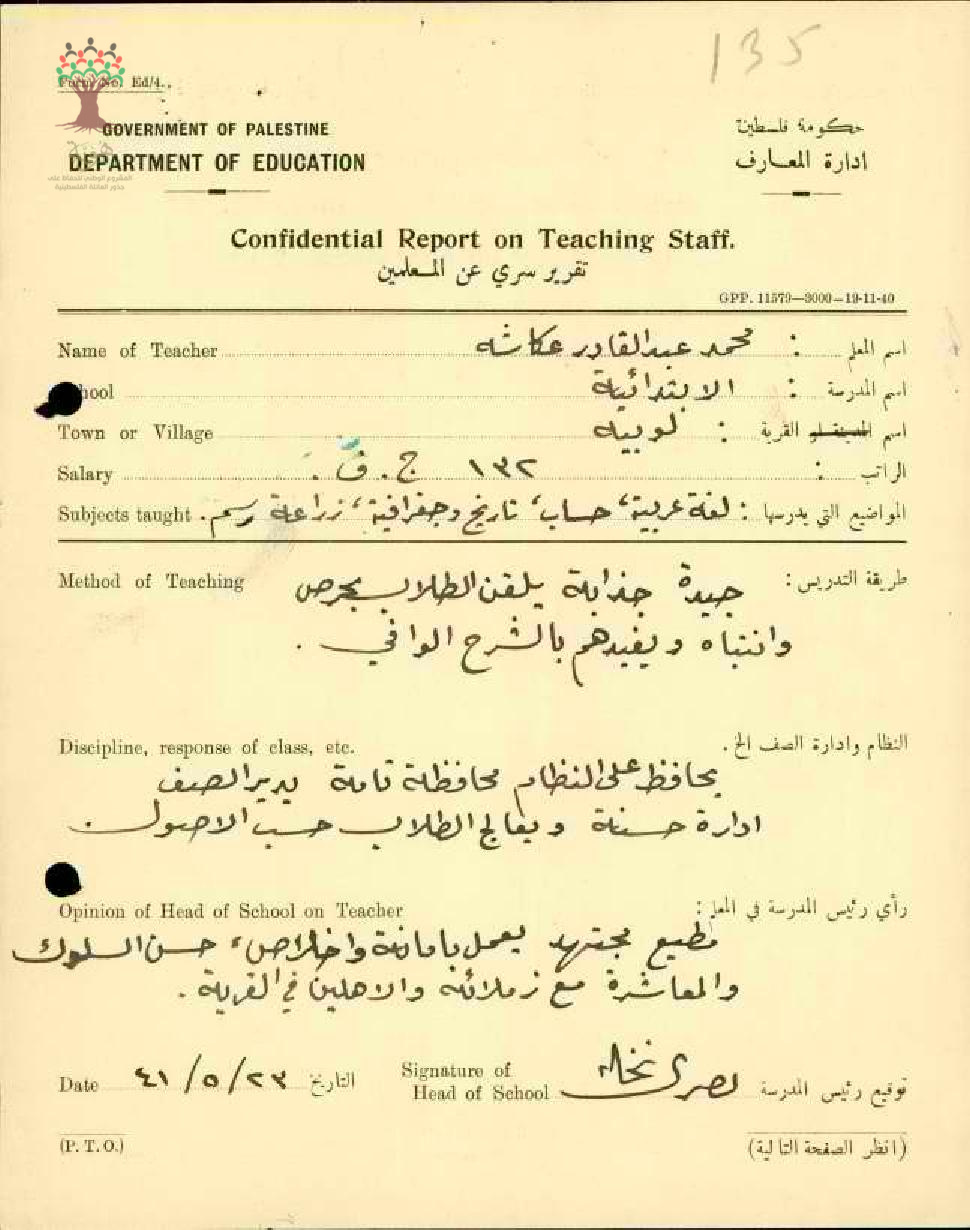 135
Form No. Ed/4.
GOVERNMENT OF PALESTINE
حكومة فلسطين
DEPARTMENT OF EDUCATION
ادارة المعارف
هوية
المشروع الوطني للحفاظ على
جذور العائلة الفلسطينية
Confidential Report on Teaching Staff.
تقرير سري عن المعلمين
GPP. 11579—3000—19-11-40
Name of Teacher محمد عبدالقادر عكاشه : اسم المعلم
hool الابتدائية : اسم المدرسة
Town or Village لوبيه : اسم المدينة او القرية
Salary ١٣٢ ج . ف . : الراتب
Subjects taught لغة عربية، حساب، تاريخ وجغرافية، زراعة رسم . المواضيع التي يدرسها :
Method of Teaching طريقة التدريس :
جيدة جذابة يلقن الطلاب بحرص
وانتباه ويفيدهم بالشرح الوافي .
Discipline, response of class, etc. النظام وادارة الصف الخ .
يحافظ على النظام محافظة تامة يدير الصف
ادارة حسنة ويعالج الطلاب حسب الاصول .
Opinion of Head of School on Teacher رأي رئيس المدرسة في المعلم :
مطيع مجتهد يعمل بامانة واخلاص، حسن السلوك
والمعاشرة مع زملائه والاهلين في القرية .
Date ٢٣/٥/٤١ التاريخ Signature of
Head of School توقيع رئيس المدرسة
(P. T. O.) (انظر الصفحة التالية)